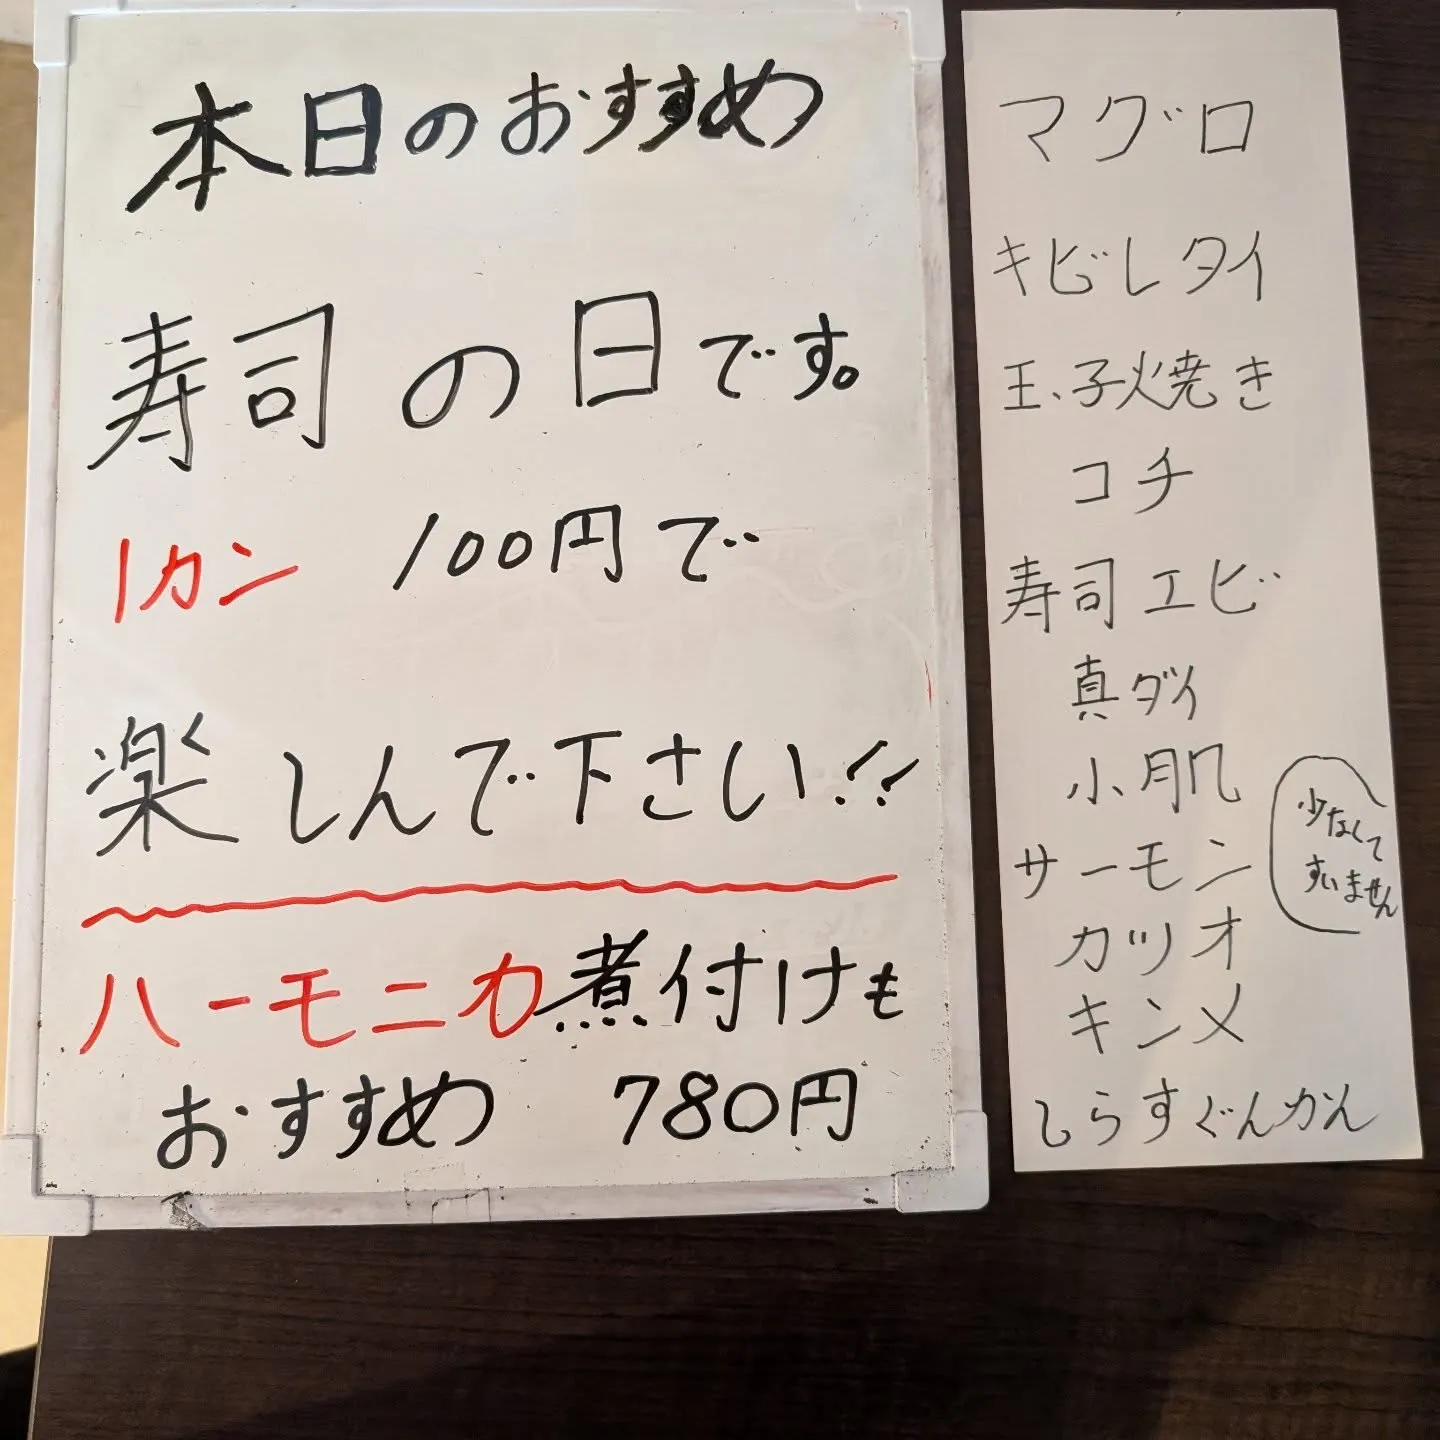 本日のおすすめ
寿司の日です。
1カン 100円で
楽しんで下さい!!
ハーモニカ煮付けも
おすすめ 780円
マグロ
キビレタイ
玉子焼き
コチ
寿司エビ
真ダイ
小肌
サーモン
カツオ
キンメ
しらすぐんかん
少なくて
すいません